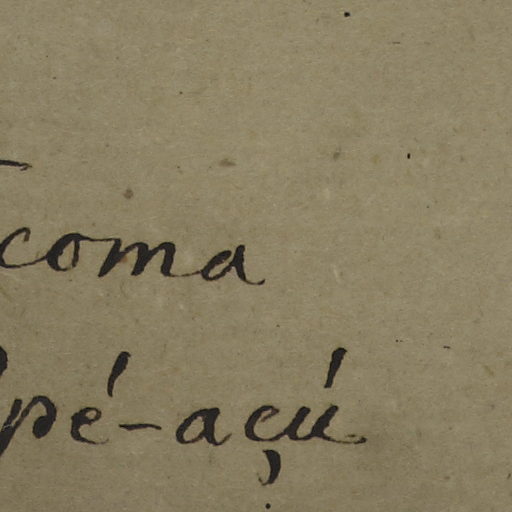 coma
pé-açú